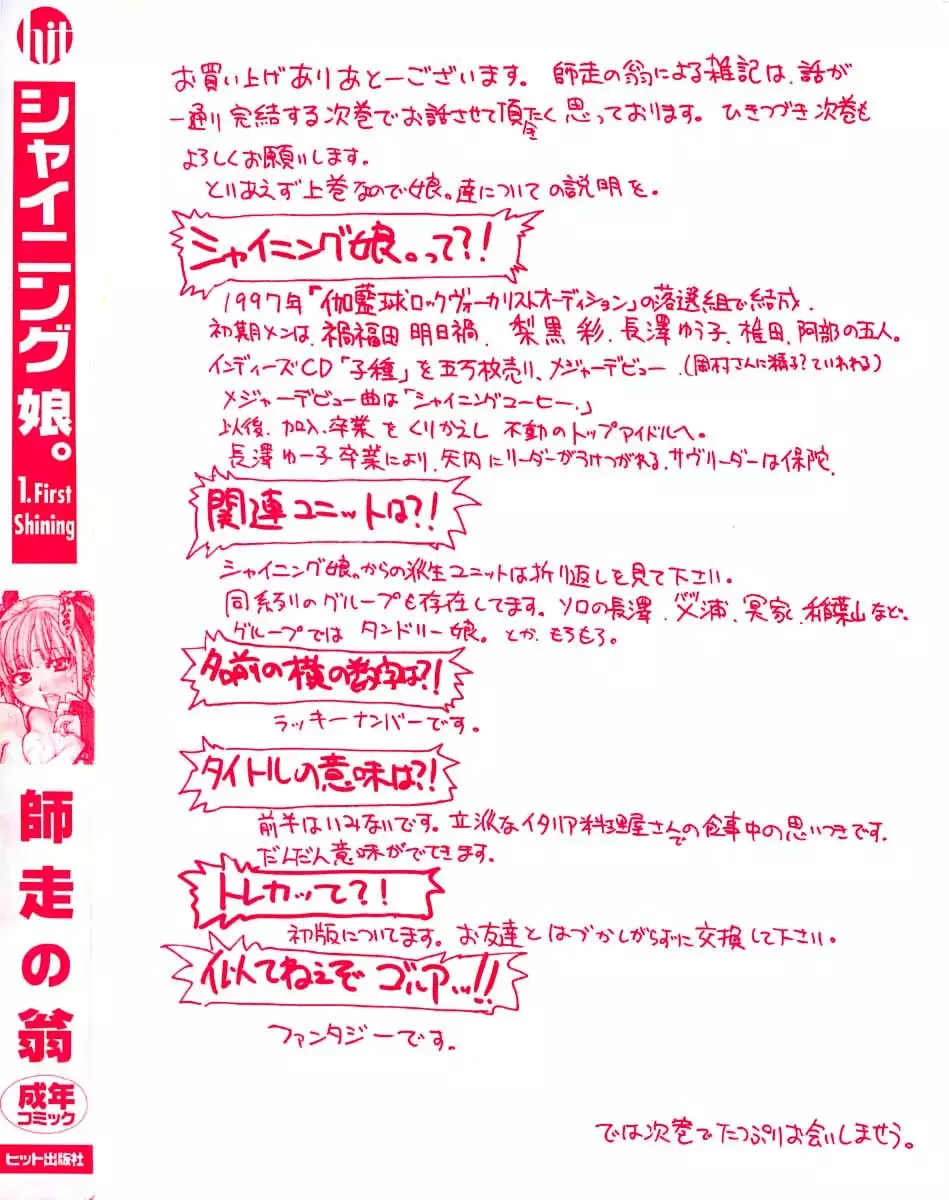 hit
シャイニング娘。
1.First
Shining
師走の翁
成年
コミック
ヒット出版社
お買い上げありあとーございます。 師走の翁による雑記は、話が
一通り完結する次巻でお話させて頂きたく思っております。 ひきつづき次巻も
よろしくお願いします。
とりあえず上巻なので娘。達についての説明を。
シャイニング娘。って?!
1997年「伽藍球ロックヴォーカリストオーディション」の落選組で結成.
初期メンは、禍福田 明日禍、 梨黒 彩、長澤ゆう子、椎田、阿部の五人。
インディーズCD「子種」を五万枚売り、メジャーデビュー.(岡村さんに精子?ていわれる)
メジャーデビュー曲は「シャイニングコーヒー.」
以後、加入、卒業をくりかえし 不動のトップアイドルへ。
長澤ゆー子卒業により、矢内にリーダーがうけつがれる、サヴリーダーは保陀.
関連ユニットは?!
シャイニング娘。からの派生ユニットは折り返しを見て下さい。
同系列のグループも存在してます。ソロの長澤、 浦、冥家、稲葉山など。
グループでは タンドリー娘。とか、もろもろ。
名前の横の数字は?!
ラッキーナンバーです。
タイトルの意味は?!
前半はいみないです。立派なイタリア料理屋さんでの食事中の思いつきです.
だんだん意味がでてきます.
トレカッて?!
初版についてます。お友達とはづかしがらずに交換して下さい。
似てねぇぞ ゴルアッ!!
ファンタジーです。
では次巻でたっぷりお会いしませう。